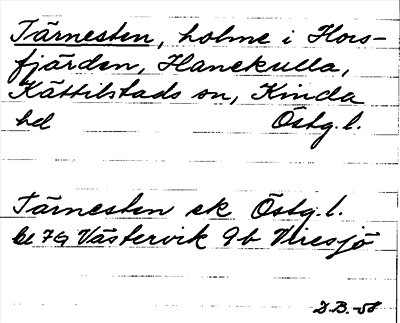 Tärnesten, holme i Hors-
fjärden, Hanekulla,
Kättilstads sn, Kinda
hd Östg. l.
Tärnesten ek Östg. l.
bl 7G Västervik 9b Viresjö
D.B.-58